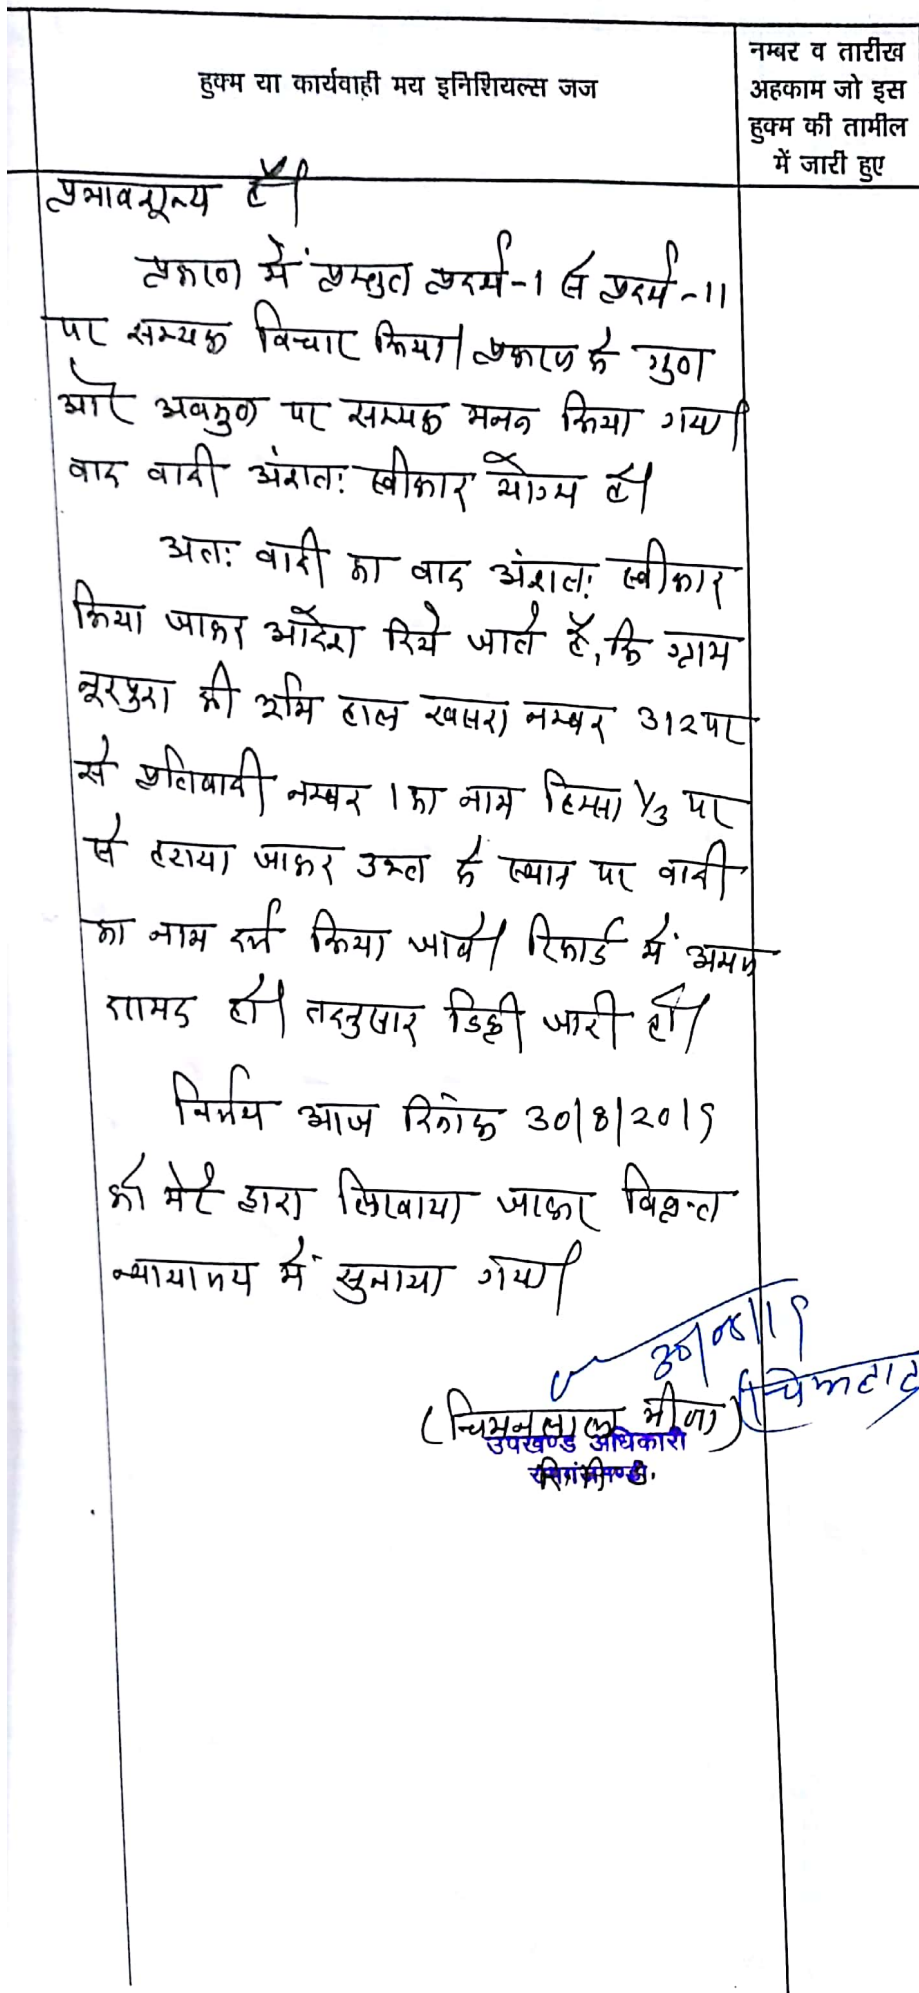 हुक्म या कार्यवाही मय इनिशियल्स जज
नम्बर व तारीख
अहकाम जो इस
हुक्म की तामील
में जारी हुए
प्रभावशून्य है।
प्रकरण में प्रस्तुत प्रदर्श-1 से प्रदर्श-11
पर सम्यक विचार किया। प्रकरण के गुण
और अवगुण पर सम्यक मनन किया गया।
वाद वादी अंशतः स्वीकार योग्य है।
अतः वादी का वाद अंशतः स्वीकार
किया जाकर आदेश दिये जाते है, कि ग्राम
नूरपुरा की भूमि हाल खसरा नम्बर 312 पर
से प्रतिवादी नम्बर 1 का नाम हिस्सा 1/3 पर
से हटाया जाकर उक्त के स्थान पर वादी
का नाम दर्ज किया जावे। रिकार्ड में अमल
दरामद हो। तदनुसार डिक्री जारी हो।
निर्णय आज दिनांक 30/8/2019
को मेरे द्वारा लिखवाया जाकर
न्यायालय में सुनाया गया।
30/08/19
(चिमनलाल मीणा)
उपखण्ड अधिकारी